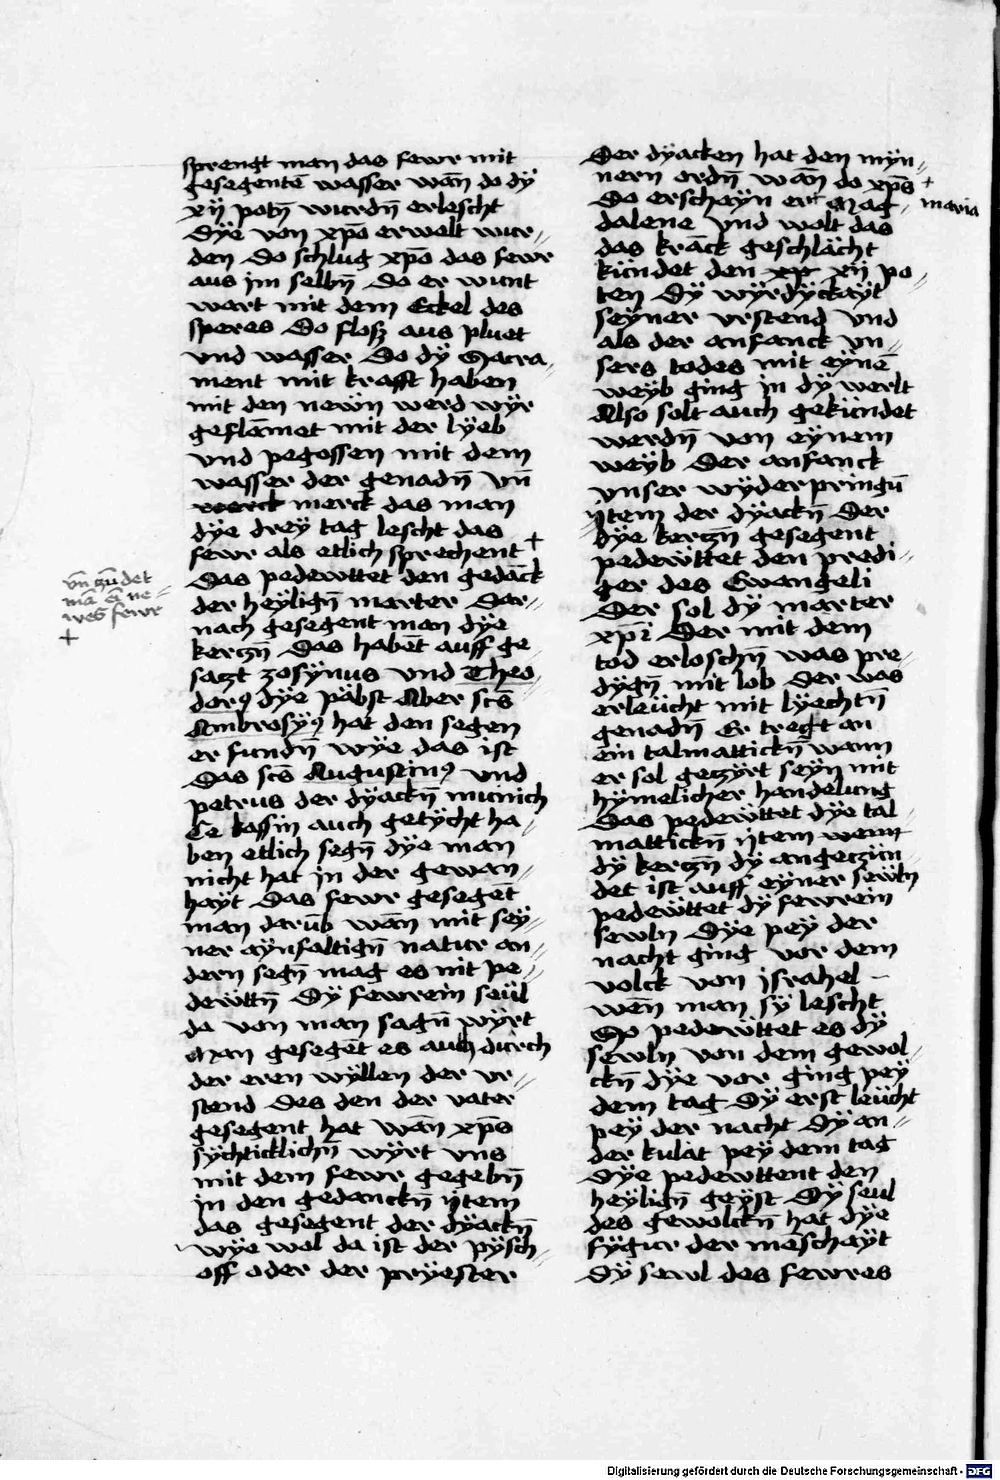 sprengt man das fewr mit
gesegentē wasser wān do dÿ
xij potn̄ wurdn̄ erlescht
dÿe von xp̄o erwelt wur⸗
den Do schlug xp̄o das fewr
aus im selbn̄ Do er wunt
wart mit dem Eckel des
speres Do flosz aus pluet
vnd wasser Do dÿ Sacra⸗
ment mit krafft haben
mit den newn̄ werd wÿr
geflāmet mit der lÿeb
vnd pegossen mit dem
wasser der genadn̄ vn̄
merck das man
dÿe dreÿ tag lescht das
fewr als etlich sprechent +
Das pedewttet den gedāck
der heÿlign̄ marter Dar⸗
nach gesegent man dÿe
kerczn̄ Das habēt auff ge⸗
saczt zosÿnus vnd Theo⸗
dorꝰ dÿe päbst Aber sctꝭ
Ambrosÿꝰ hat den segen
er fundn̄ wÿe das ist
Das sctꝭ Augustinꝰ vnd
petrus der dÿackn̄ münich
Ce kassin auch getÿcht ha⸗
ben etlich segn̄ dÿe man
nicht hat in der gewan⸗
haÿt Das fewr gesegēt
man darūb wān mit seÿ⸗
ner aÿnfaltign̄ natur an⸗
dern segn̄ mag es nit pe⸗
dewttn̄ Dÿ fewrein seül
da von man sagn̄ wÿrt
Man gesegēt es auch durch
der eren wÿllen der vr⸗
stend Des den der vater
gesegent hat wān xp̄s
sÿchticklichn̄ wÿrt vns
mit dem fewr gegebn̄
in den gedanckn̄ ijtem
das gesegent der dÿackn̄
wÿe wol da ist der pÿsch⸗
off oder der prÿester
vn̄ zūdet
mā eī ne⸗
wes fewr
+
Der dÿacken hat den mÿn⸗
nern ordn̄ wān do xp̄s +
Do erschaÿn er Mag⸗ maria
dalene vnd wolt das
das kräck geschlächt
kündet den xp xij po⸗
ten Dÿ wÿrdÿckaÿt
seÿner vrstend vnd
als der anfanck vn⸗
sers todes mit eÿnē
weÿb ging in dÿ werlt
Also solt auch gekündet
werdn̄ von eÿnem
weÿb Der anfanck
vnser wÿderpringū
ijtem der dÿackn̄ Der
dÿe kerczn̄ gesegent
pedewttet den predi⸗
ger des Ewangeli
Der sol dÿ marter
xp̄i Der mit dem
tod erloschn̄ was pre⸗
dÿgn̄ mit lob Der was
erleücht mit lÿechtn̄
genadn̄ Er tregt an
ein talmattickn̄ wann
er sol geczÿrt seÿn mit
hÿmelicher handelung
Das pedewttet dÿe tal⸗
mattickn̄ ijtem wenn
dÿ kerczn̄ dÿ angeczün⸗
det ist auff eÿner sewln
pedewttet dÿ fewrein
sewln Dÿe peÿ der
nacht ging vor dem
volck von israhel –
wēn man sÿ lescht
So pedewttet es dÿ
sewln von dem gewol⸗
ckn̄ dÿe vor ging peÿ
dem tag Dÿ erst leücht
peÿ der nacht Dÿ an⸗
der kulat peÿ dem tag
Dÿe pedewttent den
heÿlign̄ geÿst Dÿ seül
des gewolckn̄ hat dÿe
fÿgur der mēschaÿt
Dÿ sewl des fewres
Digitalisierung gefördert durch die Deutsche Forschungsgemeinschaft - DFG